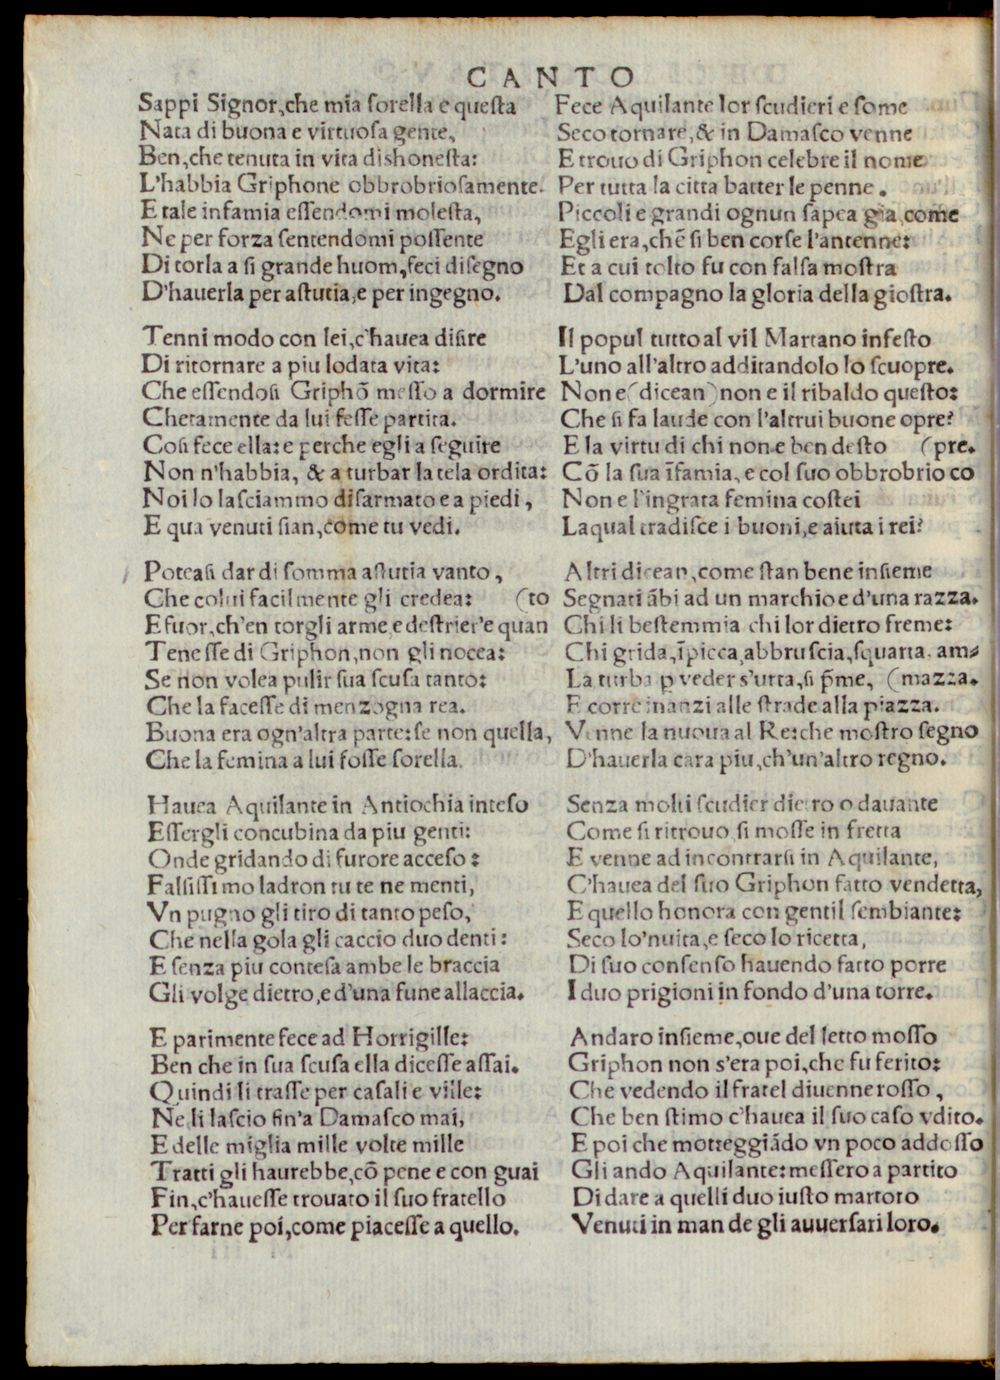 CANTO
Sappi Signor, che mia ſorella e queſta
Nata di buona e virtuoſa gente,
Ben, che tenuta in vita dishoneſta:
L'habbia Griphone obbrobrioſamente.
E tale infamia eſſendomi moleſta,
Ne per forza ſentendomi poſſente
Di torla a ſi grande huom, feci diſegno
D'hauerla per aſtutia, e per ingegno.
Tenni modo con lei, c'hauea diſire
Di ritornare a piu lodata vita:
Che eſſendoſi Griphō meſſo a dormire
Chetamente da lui feſſe partita.
Coſi fece ella: e perche egli a ſeguire
Non n'habbia, & a turbar la tela ordita:
Noi lo laſciammo diſarmato e a piedi,
E qua venuti ſian, come tu vedi.
Poteaſi dar di ſomma aſtutia vanto,
Che colui facilmente gli credea: (to
E fuor, ch'en torgli arme, e deſtrier'e quan
Teneſſe di Griphon, non gli nocea:
Se non volea pulir ſua ſcuſa tanto:
Che la faceſſe di menzogna rea.
Buona era ogn'altra parte: ſe non quella,
Che la femina a lui foſſe ſorella.
Hauea Aquilante in Antiochia inteſo
Eſſergli concubina da piu genti:
Onde gridando di furore acceſo:
Falſiſſimo ladron tu te ne menti,
Vn pugno gli tiro di tanto peſo,
Che nella gola gli caccio duo denti:
E ſenza piu conteſa ambe le braccia
Gli volge dietro, e d'una fune allaccia.
E parimente fece ad Horrigille:
Ben che in ſua ſcuſa ella diceſſe aſſai.
Quindi li traſſe per caſali e ville:
Ne li laſcio fin'a Damaſco mai,
E delle miglia mille volte mille
Tratti gli haurebbe, cō pene e con guai
Fin, c'haueſſe trouato il ſuo fratello
Per farne poi, come piaceſſe a quello.
Fece Aquilante lor ſcudieri e ſome
Seco tornare, & in Damaſco venne
E trouo di Griphon celebre il nome
Per tutta la citta batter le penne.
Piccoli e grandi ognun ſapea gia, come
Egli era, chē ſi ben corſe l'antenne:
Et a cui tolto fu con falſa moſtra
Dal compagno la gloria della gioſtra.
Il popul tutto al vil Martano infeſto
L'uno all'altro additandolo lo ſcuopre.
Non e (dicean) non e il ribaldo queſto:
Che ſi fa laude con l'altrui buone opre?
E la virtu di chi non e ben deſto (pre.
Cō la ſua īfamia, e col ſuo obbrobrio co
Non e l'ingrata femina coſtei
Laqual tradiſce i buoni, e aiuta i rei?
Altri dicean, come ſtan bene inſieme
Segnati ābi ad un marchio e d'una razza.
Chi li beſtemmia chi lor dietro freme:
Chi grida, īpicca, abbruſcia, ſquarta. am⸗
La turba p veder s'urta, ſi p̄me, (mazza.
E corre inanzi alle ſtrade alla piazza.
Venne la nuoua al Re: che moſtro ſegno
D'hauerla cara piu, ch'un'altro regno.
Senza molti ſcudier dietro o dauante
Come ſi ritrouo ſi moſſe in fretta
E venne ad incontrarſi in Aquilante,
C'hauea del ſuo Griphon fatto vendetta,
E quello honora con gentil ſembiante:
Seco lo'nuita, e ſeco lo ricetta,
Di ſuo conſenſo hauendo fatto porre
I duo prigioni in fondo d'una torre.
Andaro inſieme, oue del letto moſſo
Griphon non s'era poi, che fu ferito:
Che vedendo il fratel diuenne roſſo,
Che ben ſtimo c'hauea il ſuo caſo vdito.
E poi che motteggiādo vn poco addoſſo
Gli ando Aquilante: meſſero a partito
Di dare a quelli duo iuſto martoro
Venuti in man de gli auuerſari loro.